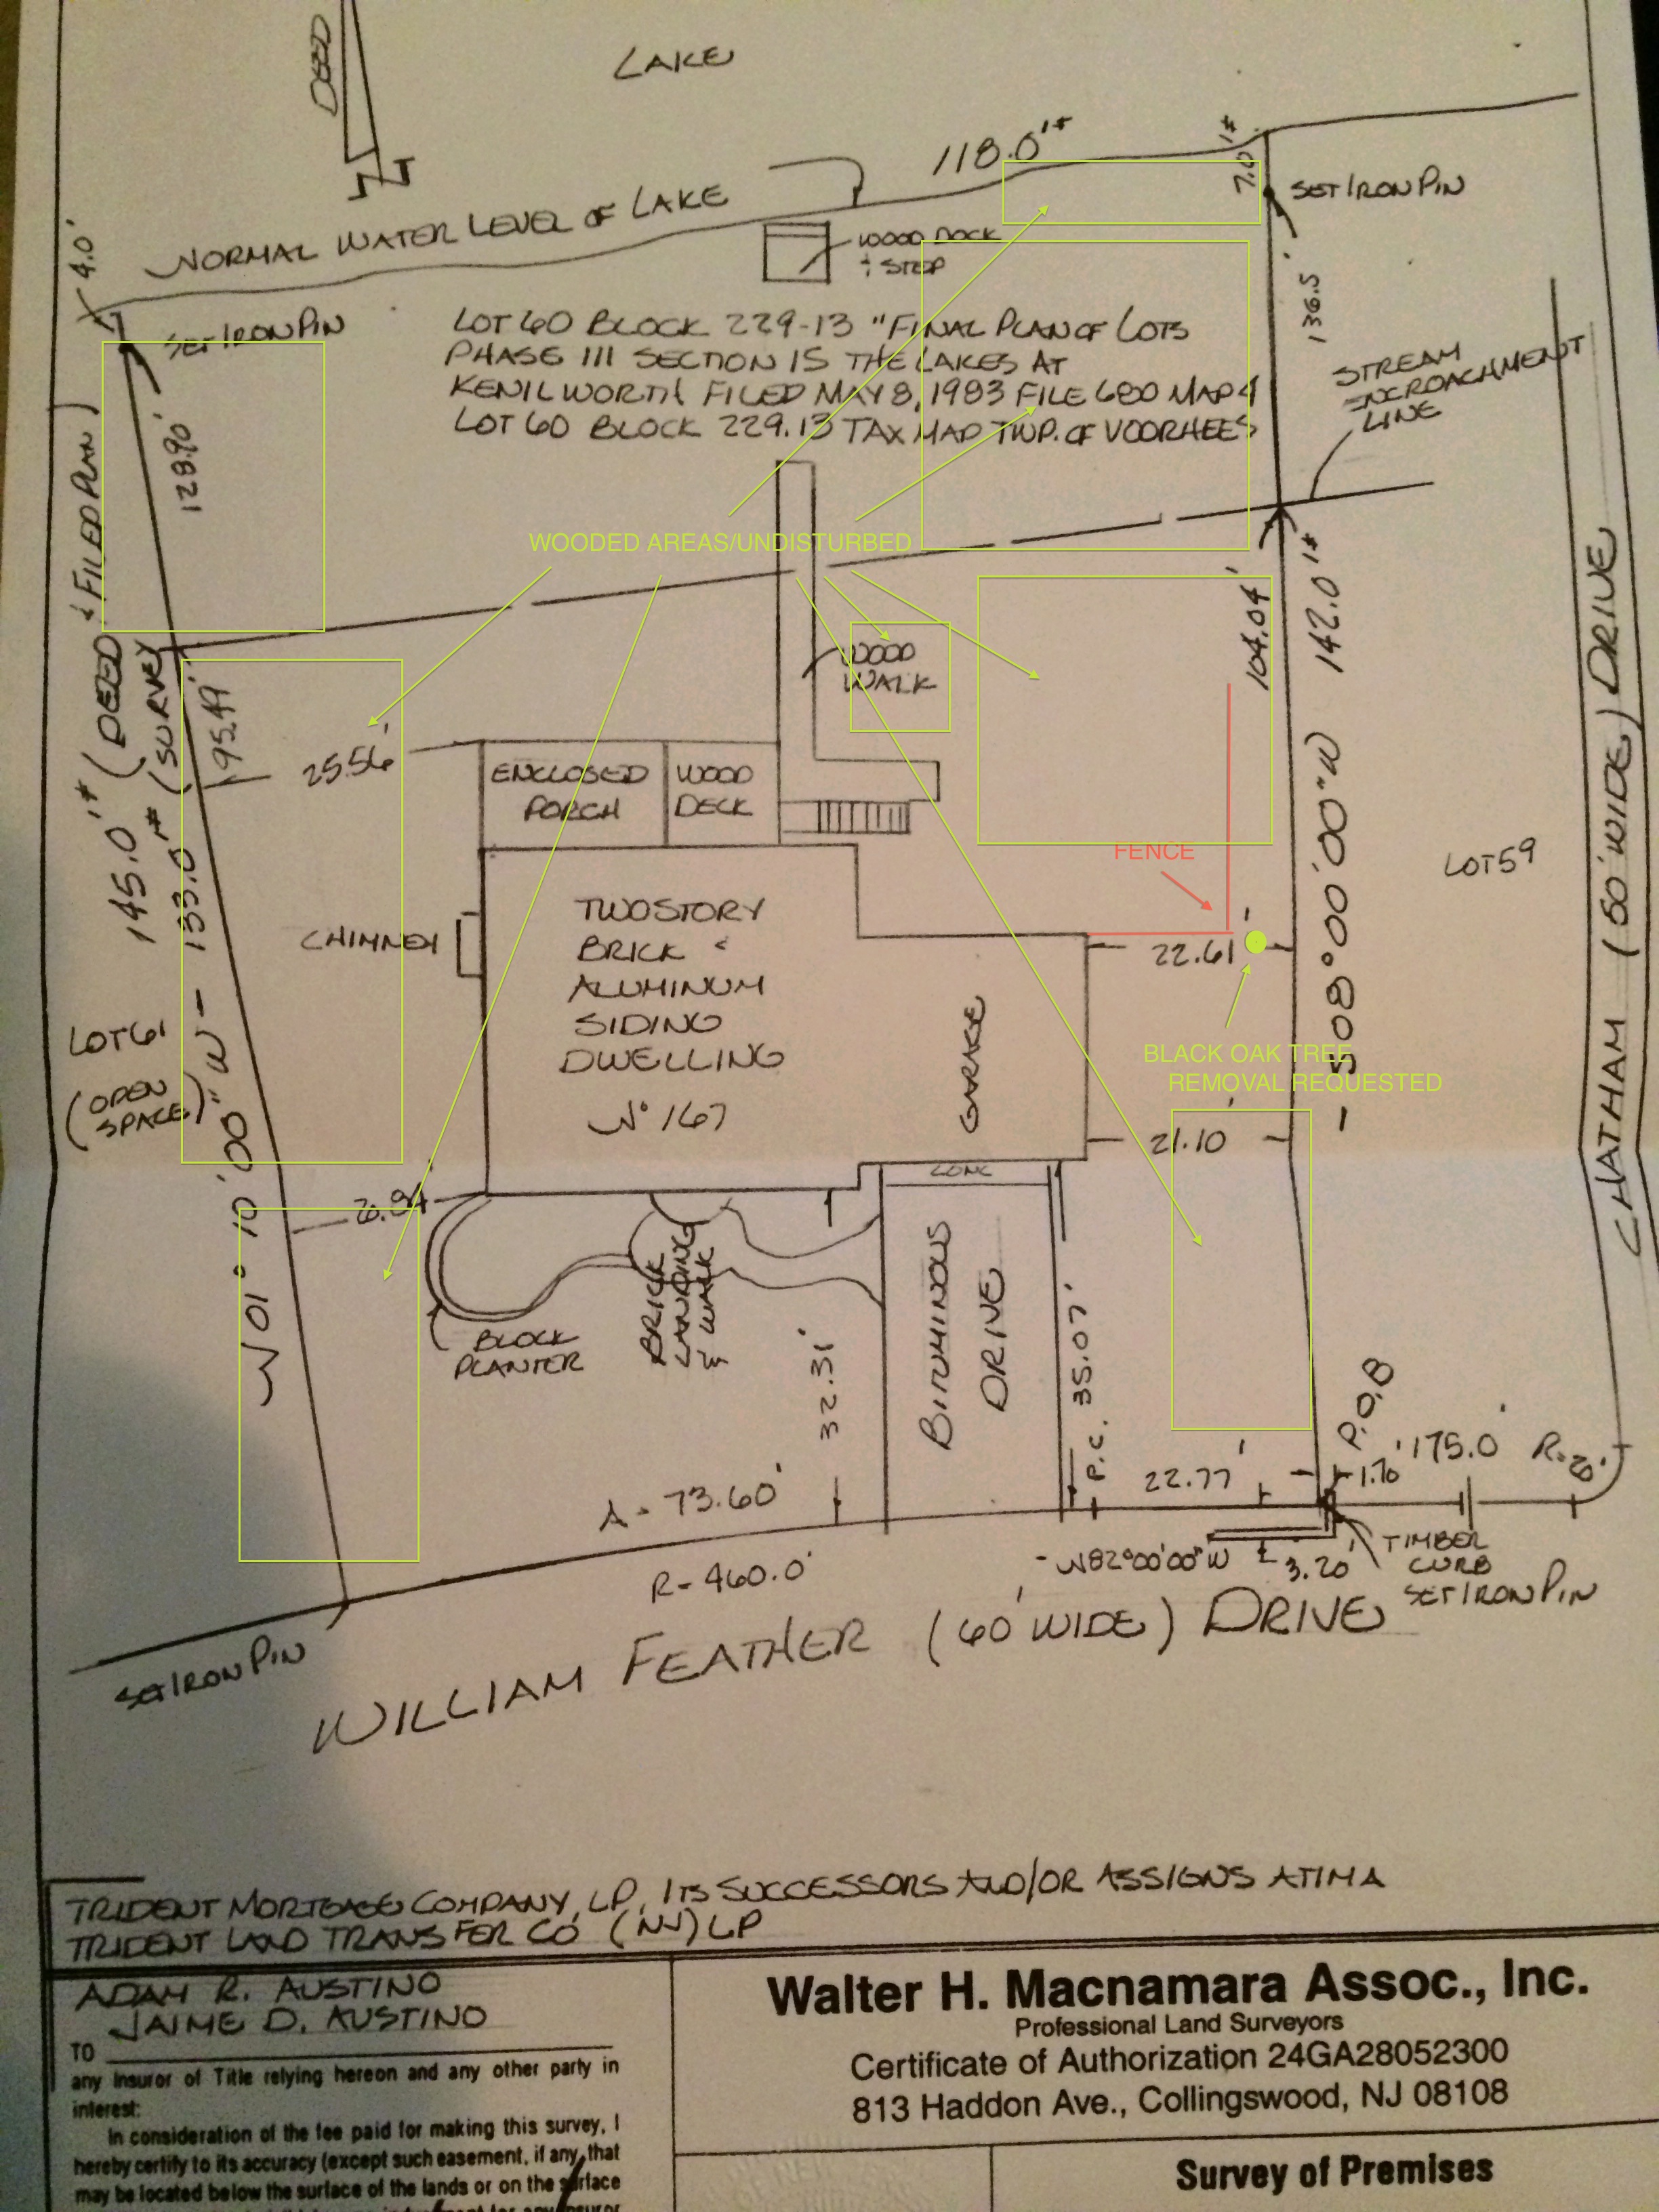 DEED
LAKE
118.0'±
7.0'±
SET IRON PIN
NORMAL WATER LEVEL OF LAKE
4.0'
WOOD DOCK
& STEP
136.5'
SET IRON PIN
LOT 60 BLOCK 229-13 "FINAL PLAN OF LOTS
PHASE III SECTION 15 THE LAKES AT
KENILWORTH FILED MAY 8, 1983 FILE 680 MAP 4
LOT 60 BLOCK 229.13 TAX MAP TWP. OF VOORHEES
STREAM
ENCROACHMENT
LINE
128.90'
WOODED AREAS/UNDISTURBED
145.0'± (DEED & FILED PLAN)
133.0'± (SURVEY
95.49'
25.56'
WOOD
WALK
104.04'
142.0'±
S08°00'00"W
CHATHAM (50' WIDE) DRIVE
ENCLOSED
PORCH
WOOD
DECK
FENCE
LOT 59
CHIMNEY
TWO STORY
BRICK &
ALUMINUM
SIDING
DWELLING
N° 167
GARAGE
22.61'
BLACK OAK TREE
REMOVAL REQUESTED
LOT 61
(OPEN
SPACE)
N01°10'00"W
21.10'
CONC
BLOCK
PLANTER
BRICK
LANDING
& WALK
32.31'
BITUMINOUS
DRIVE
35.07'
P.C.
P.O.B
22.77'
1.70'
175.0'
R-20'
A - 73.60'
R - 460.0'
N82°00'00"W
3.20'
TIMBER
CURB
SET IRON PIN
SET IRON PIN
WILLIAM FEATHER (60' WIDE) DRIVE
TRIDENT MORTGAGE COMPANY, LP, ITS SUCCESSORS AND/OR ASSIGNS ATIMA
TRIDENT LAND TRANSFER CO (NJ) LP
ADAM R. AUSTINO
JAIME D. AUSTINO
TO
any insuror of Title relying hereon and any other party in
interest:
In consideration of the fee paid for making this survey, I
hereby certify to its accuracy (except such easement, if any, that
may be located below the surface of the lands or on the surface
Walter H. Macnamara Assoc., Inc.
Professional Land Surveyors
Certificate of Authorization 24GA28052300
813 Haddon Ave., Collingswood, NJ 08108
Survey of Premises